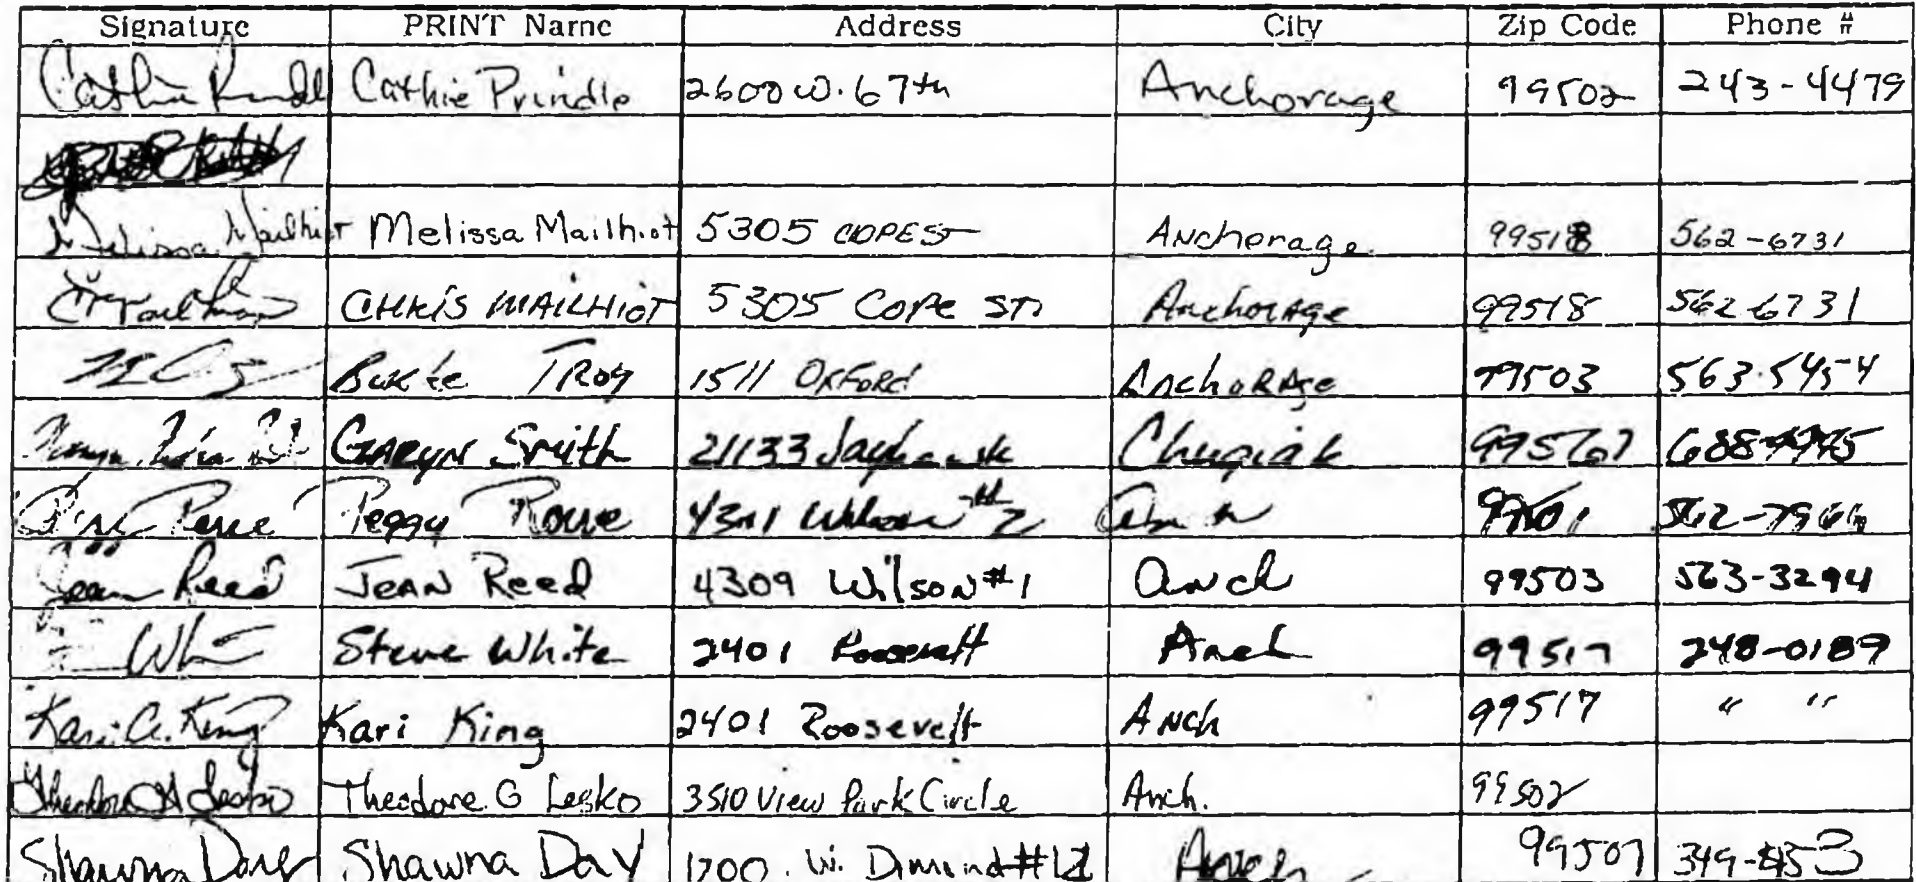 Signature PRINT Name Address City Zip Code Phone #
Cathie Prindle Cathie Prindle 2600 W. 67th Anchorage 99502 243-4479
Melissa Mailhiot Melissa Mailhiot 5305 COPE ST Anchorage 99518 562-6731
CHRIS MAILHIOT 5305 COPE ST Anchorage 99518 562 6731
TROY 1511 OXFORD AnchoRAge 99503 563-5454
GARYN Smith 21133 Jayhawk Chugiak 99567 688-
Peggy Rowe Peggy Rowe Wilson #2
Jean Reed JEAN Reed 4309 Wilson #1 Anch 99503 563-3294
Steve White 2401 Roosevelt Anch 99517 248-0189
Kari A. King Kari King 2401 Roosevelt Anch 99517 " "
Theodore G Lesko Theodore G Lesko 3510 View Park Circle Anch. 99502
Shawna Day Shawna Day 1200 W. Dimond Anch 99507 349-